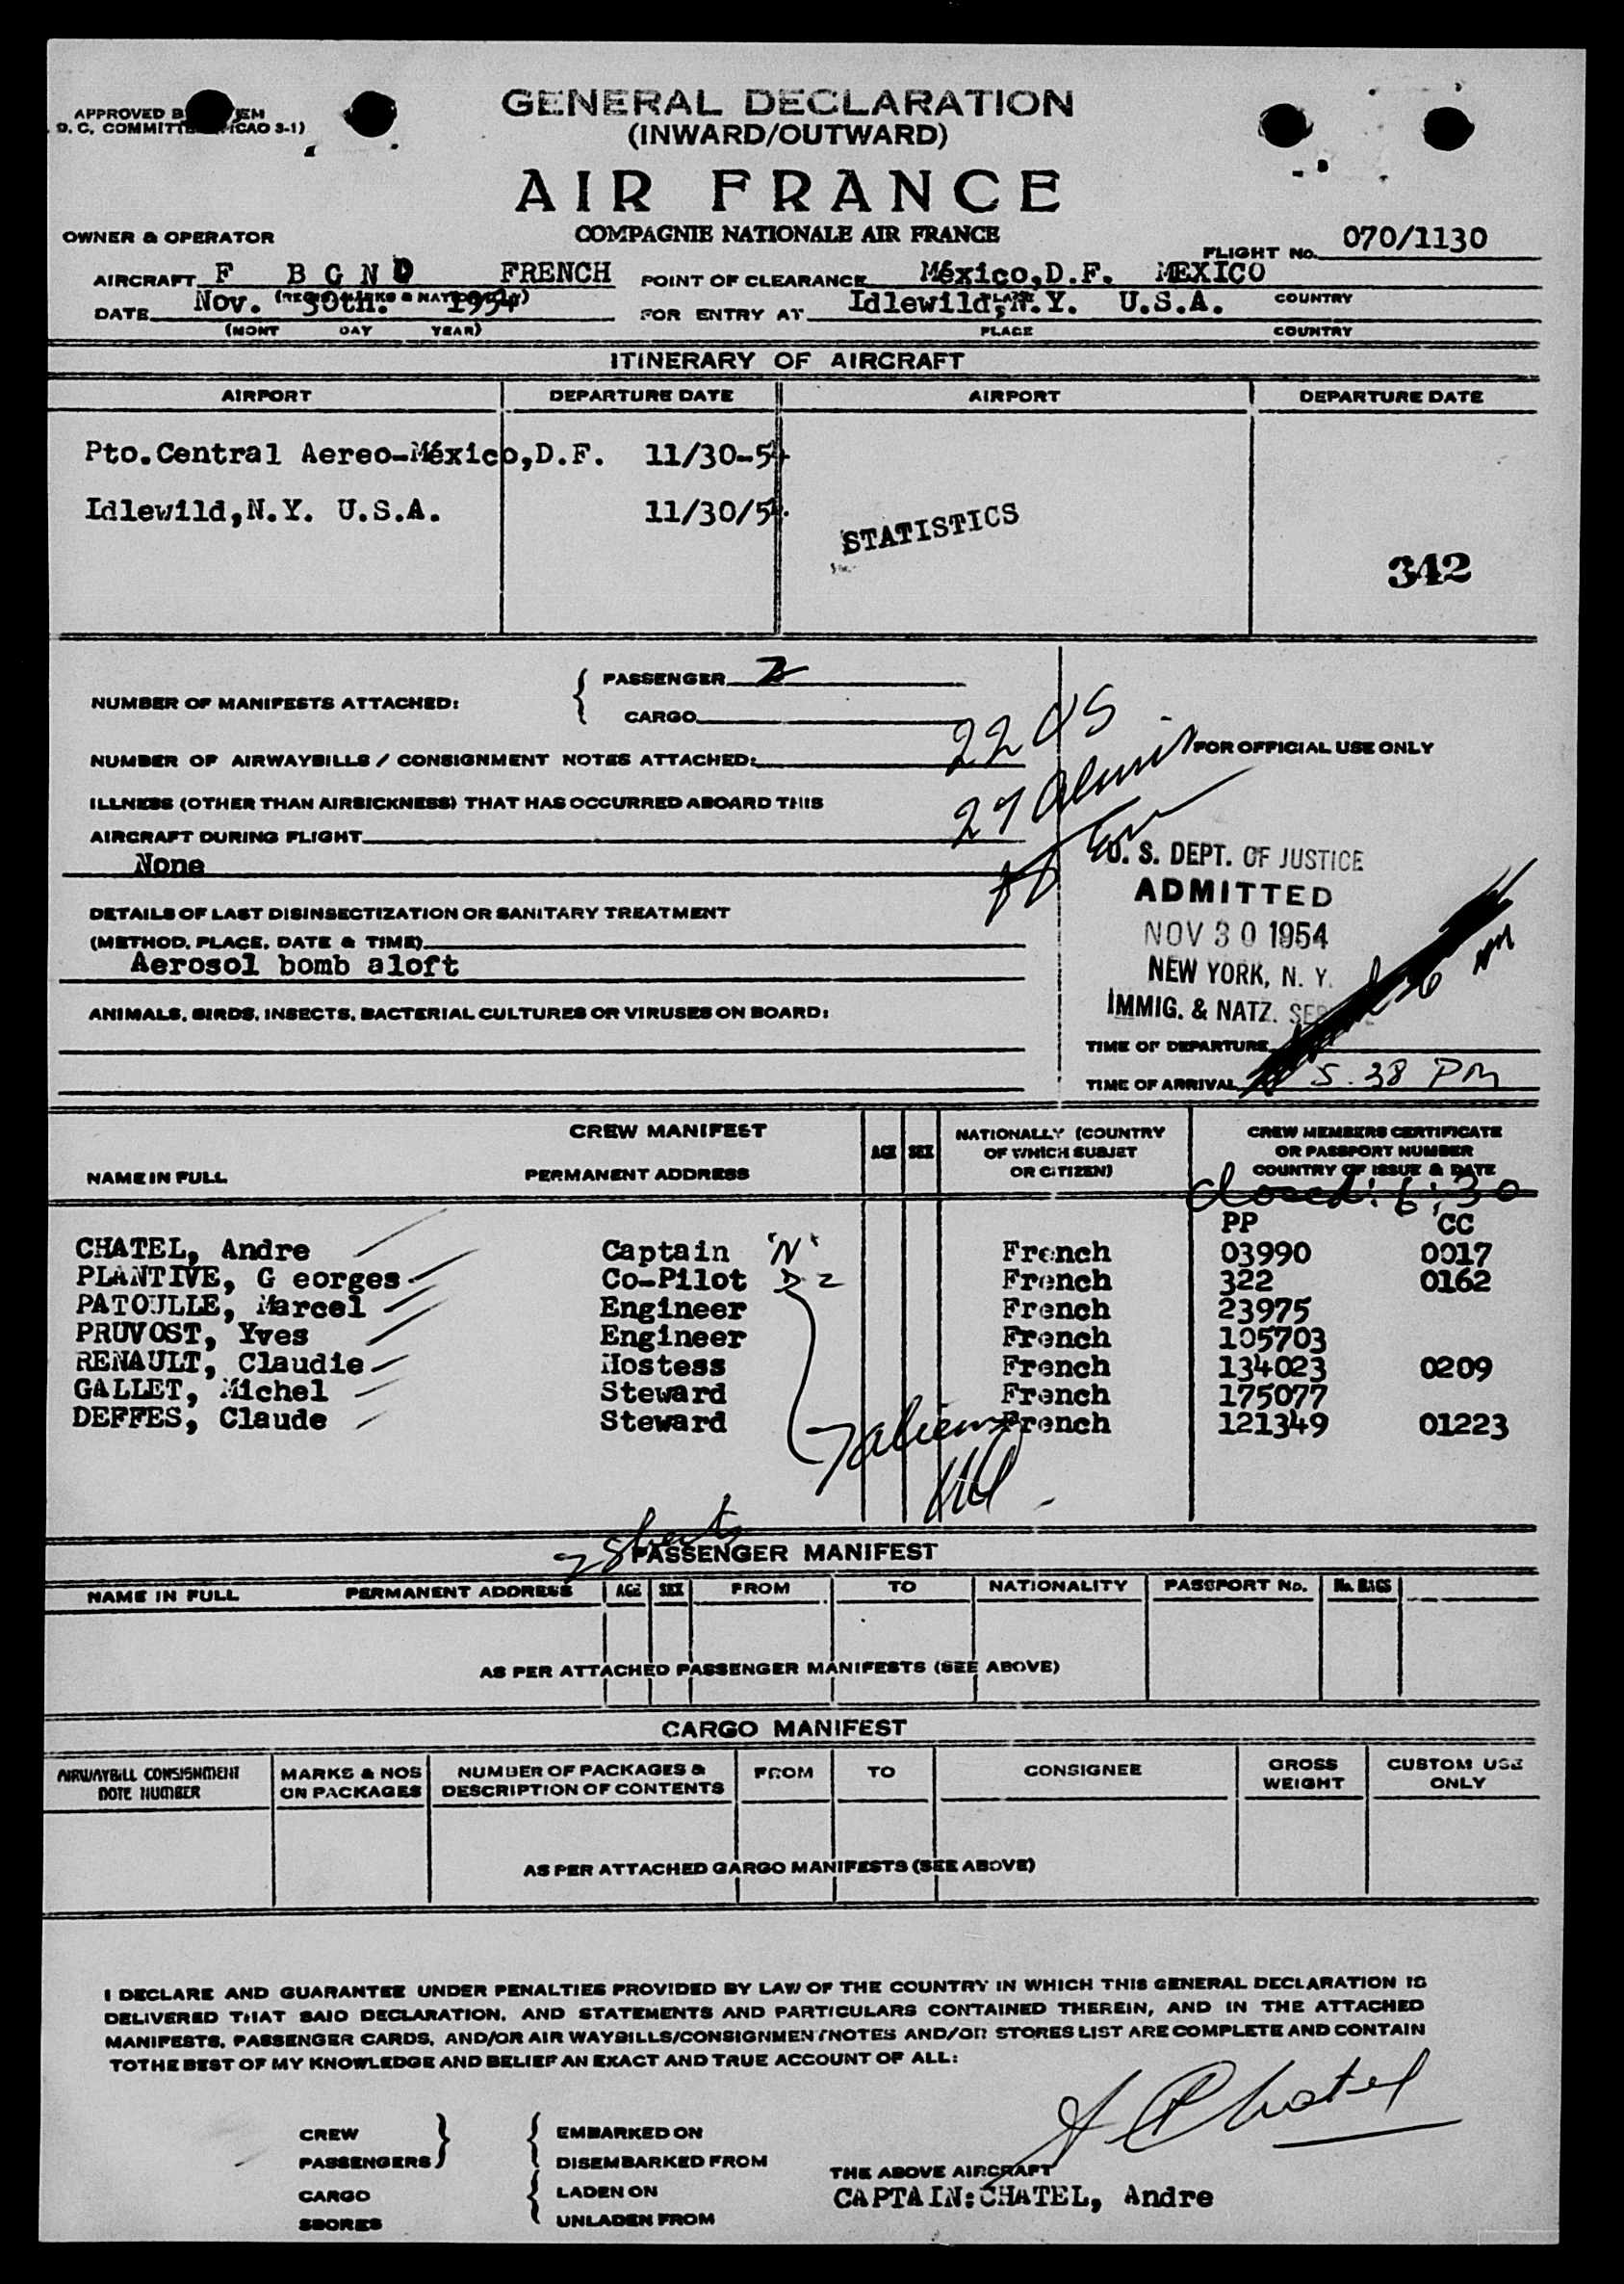 GENERAL DECLARATION
(INWARD/OUTWARD)
APPROVED B
D. C. COMMITT (ICAO S-1)
AIR FRANCE
COMPAGNIE NATIONALE AIR FRANCE
OWNER & OPERATOR
FLIGHT No. 070/1130
AIRCRAFT F B G N D FRENCH POINT OF CLEARANCE México,D.F. MEXICO
PLACE COUNTRY
DATE Nov. 30th. 1954 FOR ENTRY AT Idlewild,N.Y. U.S.A.
(MONT DAY YEAR) PLACE COUNTRY
ITINERARY OF AIRCRAFT
AIRPORT DEPARTURE DATE AIRPORT DEPARTURE DATE
Pto.Central Aereo-México,D.F. 11/30-54
Idlewild,N.Y. U.S.A. 11/30/54.
STATISTICS
342
PASSENGER 2
NUMBER OF MANIFESTS ATTACHED:
CARGO
22 US
NUMBER OF AIRWAYBILLS / CONSIGNMENT NOTES ATTACHED:
FOR OFFICIAL USE ONLY
27 aliens
ILLNESS (OTHER THAN AIRSICKNESS) THAT HAS OCCURRED ABOARD THIS
AIRCRAFT DURING FLIGHT
None
U. S. DEPT. OF JUSTICE
ADMITTED
NOV 30 1954
NEW YORK, N. Y.
IMMIG. & NATZ.
DETAILS OF LAST DISINSECTIZATION OR SANITARY TREATMENT
(METHOD, PLACE, DATE & TIME)
Aerosol bomb aloft
ANIMALS, BIRDS, INSECTS, BACTERIAL CULTURES OR VIRUSES ON BOARD:
TIME OF DEPARTURE
TIME OF ARRIVAL 5.38 PM
CREW MANIFEST
NAME IN FULL PERMANENT ADDRESS AGE SEX NATIONALLY (COUNTRY OF WHICH SUBJET OR CITIZEN) CREW MEMBERS CERTIFICATE OR PASSPORT NUMBER COUNTRY OF ISSUE & DATE
Closed: 6:30
PP CC
CHATEL, Andre Captain "N" French 03990 0017
PLANTIVE, G eorges Co-Pilot D 2 French 322 0162
PATOULLE, Marcel Engineer French 23975
PRUVOST, Yves Engineer French 105703
RENAULT, Claudie Hostess French 134023 0209
GALLET, Michel Steward French 175077
DEFFES, Claude Steward French 121349 01223
7 aliens
2 Sheets
PASSENGER MANIFEST
NAME IN FULL PERMANENT ADDRESS AGE SEX FROM TO NATIONALITY PASSPORT No. No. BAGS
AS PER ATTACHED PASSENGER MANIFESTS (SEE ABOVE)
CARGO MANIFEST
AIRWAYBILL CONSIGNMENT NOTE NUMBER MARKS & NOS ON PACKAGES NUMBER OF PACKAGES & DESCRIPTION OF CONTENTS FROM TO CONSIGNEE GROSS WEIGHT CUSTOM USE ONLY
AS PER ATTACHED CARGO MANIFESTS (SEE ABOVE)
I DECLARE AND GUARANTEE UNDER PENALTIES PROVIDED BY LAW OF THE COUNTRY IN WHICH THIS GENERAL DECLARATION IS
DELIVERED THAT SAID DECLARATION, AND STATEMENTS AND PARTICULARS CONTAINED THEREIN, AND IN THE ATTACHED
MANIFESTS, PASSENGER CARDS, AND/OR AIR WAYBILLS/CONSIGNMENTNOTES AND/OR STORES LIST ARE COMPLETE AND CONTAIN
TOTHE BEST OF MY KNOWLEDGE AND BELIEF AN EXACT AND TRUE ACCOUNT OF ALL:
A Chatel
CREW EMBARKED ON
PASSENGERS DISEMBARKED FROM
THE ABOVE AIRCRAFT
CARGO LADEN ON
CAPTAIN:CHATEL, Andre
SDORES UNLADEN FROM